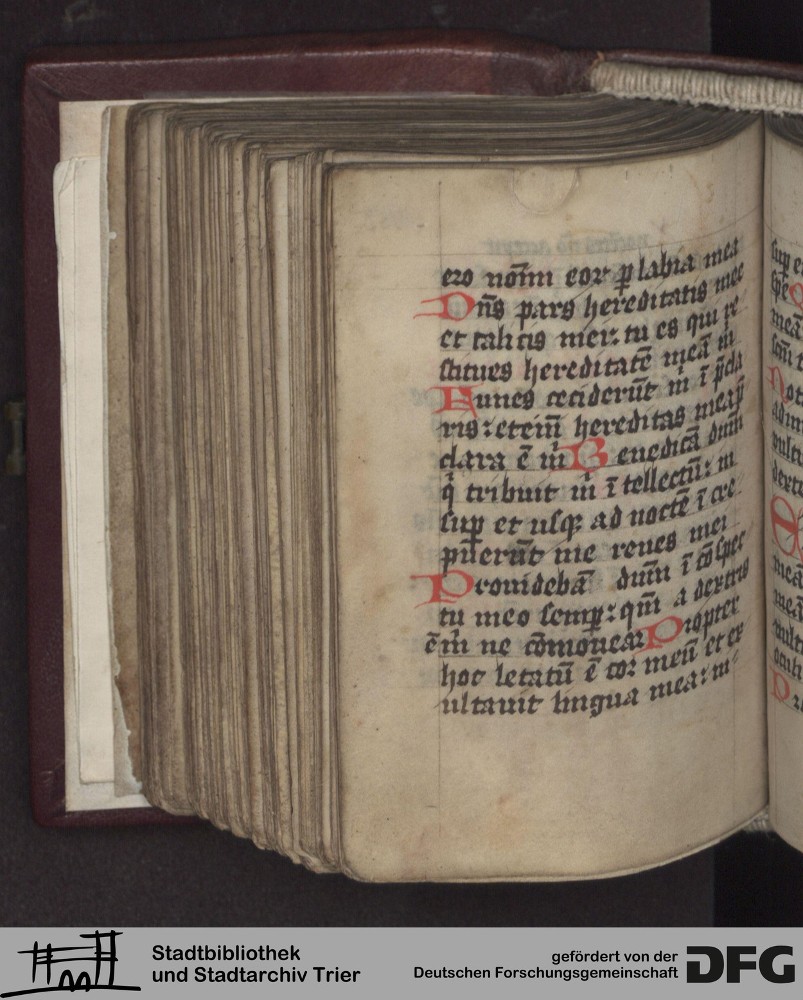 ero noīm eoꝝ ꝑ labia mea
Dn̄s pars hereditatis mee
et calicis mei: tu es qui re
stitues hereditatē meā m̄
Funes ceciderūt m̄ ī p̄cla
ris: eteni̅ hereditas mea p̄
clara ē m̄ Benedicā dn̄m
q̇ tribuit m̄ ītellectū: īn
sup̱ et usqꝫ ad noctē īcre
puerūt me renes mei
Prouidebā dn̄m ī cōspec
tu meo semꝑ: qm̄ a dextris
ē m̄ ne cōmouear Propter
hoc letatū ē cor meū et ex
ultauit lingua mea: in
Stadtbibliothek
und Stadtarchiv Trier
gefördert von der
Deutschen Forschungsgemeinschaft
DFG